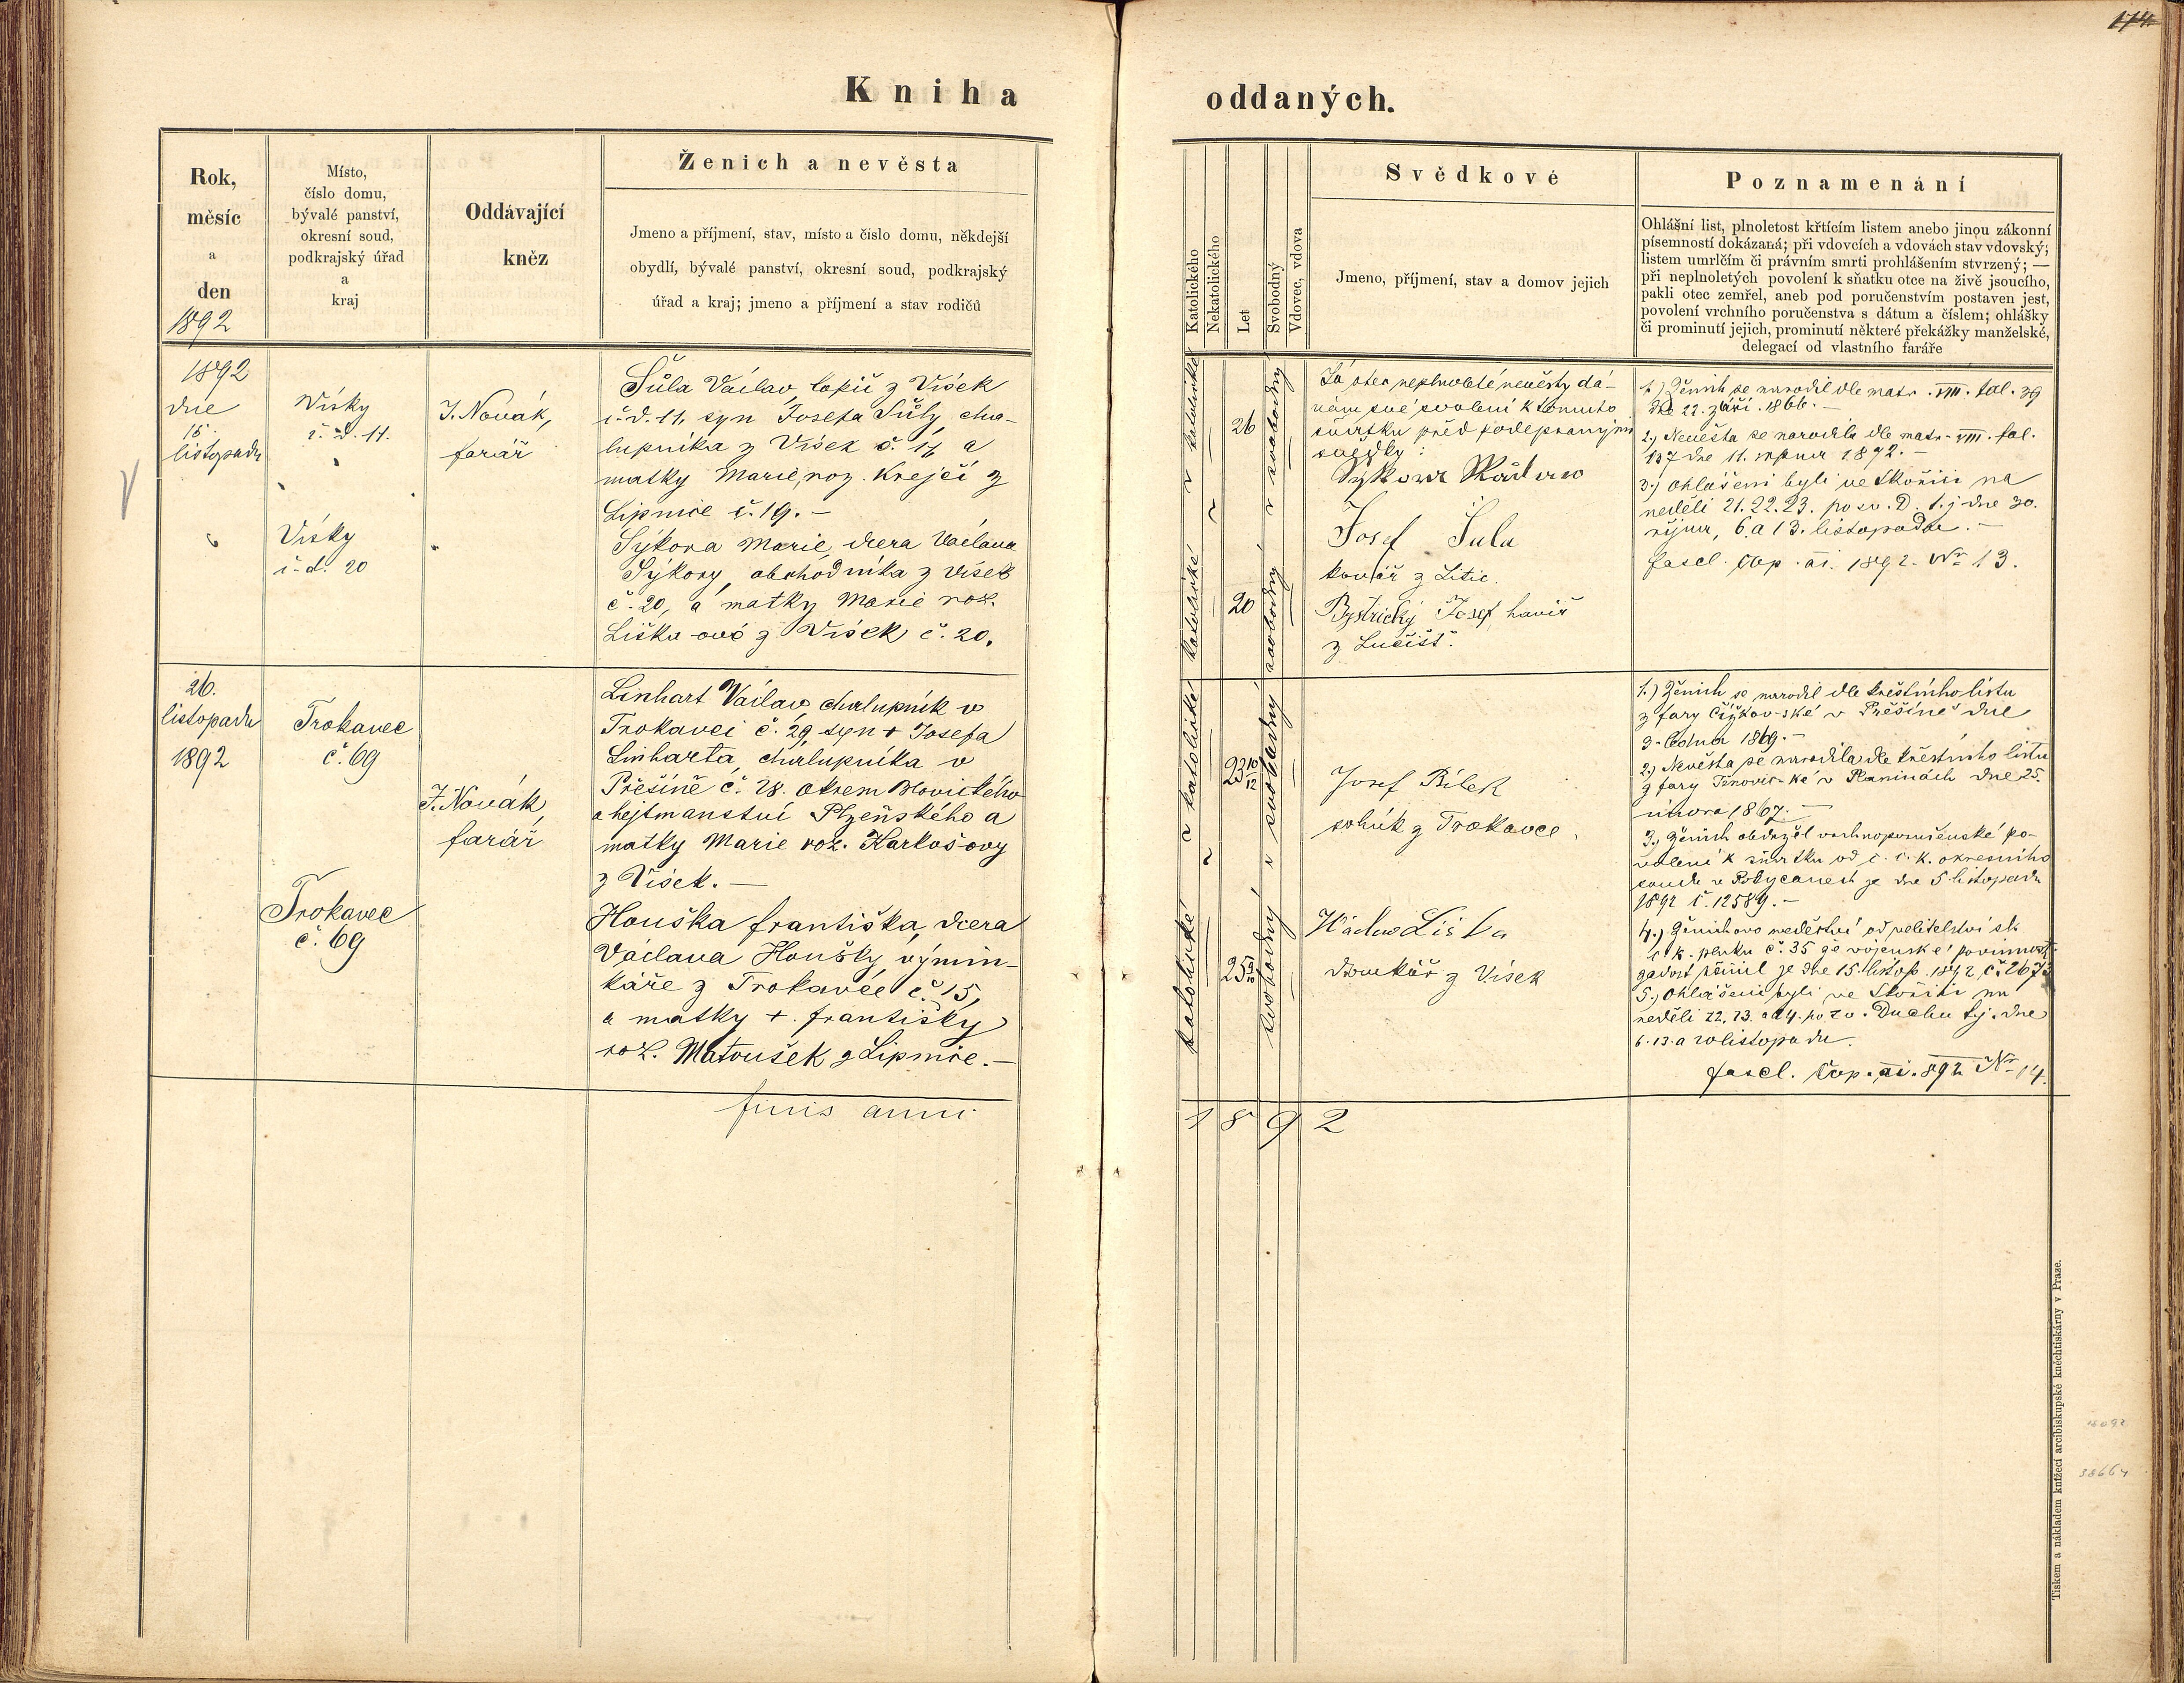 174
Kniha oddaných.
Rok,
měsíc
a
den
1892
Místo,
číslo domu,
bývalé panství,
okresní soud,
podkrajský úřad
a
kraj
Oddávající
kněz
Ženich a nevěsta
Jmeno a příjmení, stav, místo a číslo domu, někdejší
obydlí, bývalé panství, okresní soud, podkrajský
úřad a kraj; jmeno a příjmení a stav rodičů
Katolického
Nekatolického
Let
Svobodný
Vdovec, vdova
Svědkové
Jmeno, příjmení, stav a domov jejich
Poznamenání
Ohlášní list, plnoletost křtícím listem anebo jinou zákonní
písemností dokázaná; při vdovcích a vdovách stav vdovský;
listem umrlčím či právním smrti prohlášením stvrzený; —
při neplnoletých povolení k sňatku otce na živě jsoucího,
pakli otec zemřel, aneb pod poručenstvím postaven jest,
povolení vrchního poručenstva s dátum a číslem; ohlášky
či prominutí jejich, prominutí některé překážky manželské,
delegací od vlastního faráře
1892
dne
15.
listopadu
Vísky
č. d. 11.
Vísky
č. d. 20
J. Novák,
farář
Šůla Václav, kopič z Vísek
č. d. 11, syn Josefa Šůly, cha-
lupníka z Vísek č. 11 a
matky Marie, roz. Krejčí z
Lipnice č. 19. —
Sýkora Marie, dcera Václava
Sýkory, obchodníka z Vísek
č. 20, a matky Marie roz.
Liška-ové z Vísek č. 20.
katolické
katolické
26
20
svobodný
svobodný
Já otec neplnoleté nevěsty dá-
vám své svolení k tomuto
sňatku před podepsanými
svědky:
Sýkora
Josef Šula
kovář z Litic.
Bystřický Josef, havíř
z Lučišť.
1.) Ženich se narodil dle matr. VIII. fol. 39
dne 22. září. 1866. —
2.) Nevěsta se narodila dle matr. VIII. fol.
137 dne 11. srpna 1872. —
3.) Ohlášeni byli ve Skořici na
neděli 21. 22. 23. po sv. D. t. j. dne 30.
října, 6. a 13. listopadu. —
fascl. Cop. ai. 1892. № 13.
26.
listopadu
1892
Trokavec
č. 69
Trokavec
č. 69
J. Novák,
farář
Linhart Václav, chalupník v
Trokavci č. 29, syn + Josefa
Linharta, chalupníka v
Přešíně č. 28. okresu Blovického
a hejtmanství Plzeňského a
matky Marie roz. Karkošovy
z Vísek. —
Houška Františka, dcera
Václava Houšky, výmin-
káře z Trokavce č. 15,
a matky +. Františky
roz. Matoušek z Lipnice. —
katolické
katolické
23 10/12
25 9/10
svobodný
svobodný
Josef Bílek
rolník z Trokavce.
Václav Liška
domkář z Vísek
1.) Ženich se narodil dle křestního listu
z fary Čížkov-ské v Přešíně dne
3. ledna 1869. —
2.) Nevěsta se narodila dle křestního listu
z fary dne 25.
února 1867. —
3.) Ženich obdržel vrchnoporučenské po-
volení k sňatku od c. k. okresního
soudu v Rokycanech ze dne 5. listopadu
1892 č. 12589. —
4.) Ženichovo svědectví od velitelství
c. k. pluku č. 35 že vojenské povinnosti
zadost učinil ze dne 15. listop. 1892 č. 2673
5.) Ohlášeni byli ve Skořici na
neděli 22. 23. a 24. po sv. Duchu t. j. dne
6. 13. a 20 listopadu.
fascl. Cop. ai. 892 № 14.
finis anni 1892
Tiskem a nákladem knížecí arcibiskupské knihtiskárny v Praze.
33664